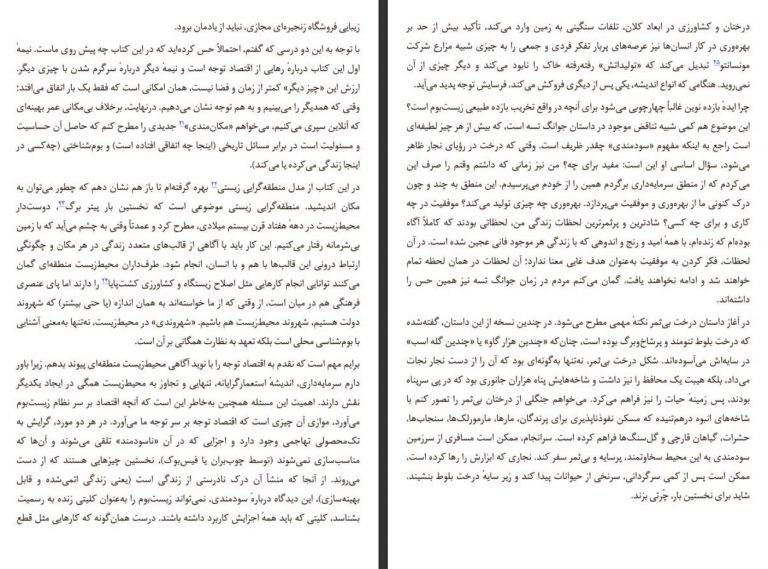 زیبایی فروشگاه زنجیره‌ای مجازی، نباید از یادمان برود.
با توجه به این دو درسی که گفتم، احتمالاً حس کرده‌اید که در این کتاب چه پیش روی ماست. نیمهٔ
اول این کتاب دربارهٔ رهایی از اقتصاد توجه است و نیمهٔ دیگر دربارهٔ سرگرم شدن با چیزی دیگر.
ارزش این «چیز دیگر» کمتر از زمان و فضا نیست، همان امکانی است که فقط یک بار اتفاق می‌افتد؛
وقتی که همدیگر را می‌بینیم و به هم توجه نشان می‌دهیم. درنهایت، برخلاف بی‌مکانی عمر بهینه‌ای
که آنلاین سپری می‌کنیم، می‌خواهم «مکان‌مندی»۲۱ جدیدی را مطرح کنم که حاصل آن حساسیت
و مسئولیت است در برابر مسائل تاریخی (اینجا چه اتفاقی افتاده است) و بوم‌شناختی (چه‌کسی در
اینجا زندگی می‌کرده یا می‌کند).
در این کتاب از مدل منطقه‌گرایی زیستی۲۲ بهره گرفته‌ام تا باز هم نشان دهم که چطور می‌توان به
مکان اندیشید. منطقه‌گرایی زیستی موضوعی است که نخستین بار پیتر برگ۲۳، دوست‌دار
محیط‌زیست در دههٔ هفتاد قرن بیستم میلادی، مطرح کرد و عمدتاً وقتی به چشم می‌آید که با زمین
بی‌شرمانه رفتار می‌کنیم. این کار باید با آگاهی از قالب‌های متعدد زندگی در هر مکان و چگونگی
ارتباط درونی این قالب‌ها با هم و با انسان، انجام شود. طرف‌داران محیط‌زیست منطقه‌ای گمان
می‌کنند توانایی انجام کارهایی مثل اصلاح زیستگاه و کشاورزی کشت‌پایا۲۴ را دارند اما پای عنصری
فرهنگی هم در میان است، از وقتی که از ما خواسته‌اند به همان اندازه (یا حتی بیشتر) که شهروند
دولت هستیم، شهروند محیط‌زیست هم باشیم. «شهروندی» در محیط‌زیست، نه‌تنها به‌معنی آشنایی
با بوم‌شناسی محلی است بلکه تعهد به نظارت همگانی بر آن است.
برایم مهم است که نقدم به اقتصاد توجه را با نوید آگاهی محیط‌زیست منطقه‌ای پیوند بدهم، زیرا باور
دارم سرمایه‌داری، اندیشهٔ استعمارگرایانه، تنهایی و تجاوز به محیط‌زیست همگی در ایجاد یکدیگر
نقش دارند. اهمیت این مسئله همچنین به‌خاطر این است که آنچه اقتصاد بر سر نظام زیست‌بوم
می‌آورد، موازی آن چیزی است که اقتصاد توجه بر سر توجه ما می‌آورد. در هر دو مورد، گرایش به
تک‌محصولی تهاجمی وجود دارد و اجزایی که در آن «ناسودمند» تلقی می‌شوند و آن‌ها که
مناسب‌سازی نمی‌شوند (توسط چوب‌بران یا فیس‌بوک)، نخستین چیزهایی هستند که از دست
می‌روند. از آنجا که منشأ آن درک نادرستی از زندگی است (یعنی زندگی اتمی‌شده و قابل
بهینه‌سازی)، این دیدگاه دربارهٔ سودمندی، نمی‌تواند زیست‌بوم را به‌عنوان کلیتی زنده به رسمیت
بشناسد، کلیتی که باید همهٔ اجزایش کاربرد داشته باشند. درست همان‌گونه که کارهایی مثل قطع
درختان و کشاورزی در ابعاد کلان، تلفات سنگینی به زمین وارد می‌کند، تأکید بیش از حد بر
بهره‌وری در کار انسان‌ها نیز عرصه‌های پربار تفکر فردی و جمعی را به چیزی شبیه مزارع شرکت
مونسانتو۲۵ تبدیل می‌کند که «تولیداتش» رفته‌رفته خاک را نابود می‌کند و دیگر چیزی از آن
نمی‌روید. هنگامی که انواع اندیشه، یکی پس از دیگری فروکش می‌کند، فرسایش توجه پدید می‌آید.
چرا ایدهٔ بازده نوین غالباً چهارچوبی می‌شود برای آنچه در واقع تخریب بازده طبیعی زیست‌بوم است؟
این موضوع هم کمی شبیه تناقض موجود در داستان جوانگ تسه است، که بیش از هر چیز لطیفه‌ای
است راجع به اینکه مفهوم «سودمندی» چقدر ظریف است. وقتی که درخت در رؤیای نجار ظاهر
می‌شود، سؤال اساسی او این است: مفید برای چه؟ من نیز زمانی که داشتم وقتم را صرف این
می‌کردم که از منطق سرمایه‌داری برگردم همین را از خودم می‌پرسیدم. این منطق به چند و چون
درک کنونی ما از بهره‌وری و موفقیت می‌پردازد. بهره‌وری چه چیزی تولید می‌کند؟ موفقیت در چه
کاری و برای چه کسی؟ شادترین و پرثمرترین لحظات زندگی من، لحظاتی بودند که کاملاً آگاه
بوده‌ام که زنده‌ام، با همهٔ امید و رنج و اندوهی که با زندگی هر موجود فانی عجین شده است. در آن
لحظات، فکر کردن به موفقیت به‌عنوان هدف غایی معنا ندارد؛ آن لحظات در همان لحظه تمام
خواهند شد و ادامه نخواهند یافت. گمان می‌کنم مردم در زمان جوانگ تسه نیز همین حس را
داشته‌اند.
در آغاز داستان درخت بی‌ثمر نکتهٔ مهمی مطرح می‌شود. در چندین نسخه از این داستان، گفته‌شده
که درخت بلوط تنومند و پرشاخ‌وبرگ بوده است، چنان‌که «چندین هزار گاو» یا «چندین گله اسب»
در سایه‌اش می‌آسوده‌اند. شکل درخت بی‌ثمر، نه‌تنها به‌گونه‌ای بود که آن را از دست نجار نجات
می‌داد، بلکه هیبت یک محافظ را نیز داشت و شاخه‌هایش پناه هزاران جانوری بود که در پی سرپناه
بودند، پس زمینهٔ حیات را نیز فراهم می‌کرد. می‌خواهم جنگلی از درختان بی‌ثمر را تصور کنم با
شاخه‌های انبوه درهم‌تنیده که مسکن نفوذناپذیری برای پرندگان، مارها، مارمولک‌ها، سنجاب‌ها،
حشرات، گیاهان قارچی و گل‌سنگ‌ها فراهم کرده است. سرانجام، ممکن است مسافری از سرزمین
سودمندی به این محیط سخاوتمند، پرسایه و بی‌ثمر سفر کند. نجاری که ابزارش را رها کرده است،
ممکن است پس از کمی سرگردانی، سرنخی از حیوانات پیدا کند و زیر سایهٔ درخت بلوط بنشیند.
شاید برای نخستین بار، چُرتی بزند.